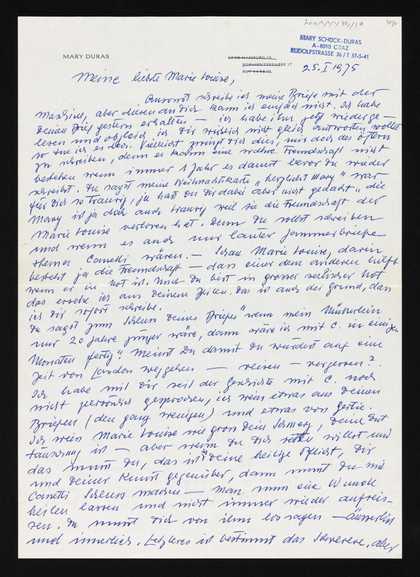 MARY DURAS
MARY SCHOCK-DURAS
A-8010 GRAZ
RUDOLFSTRASSE
25. I 1975
Meine liebste Marie Louise,
Ansonst schreibe ich meine Briefe mit der
Maschine, aber diesen an dich kann ich einfach nicht. Ich habe
Deinen Brief gestern erhalten – ich habe ihn jetzt wieder ge-
lesen und obzwar ich Dir wirklich nicht gleich antworten wollte
so tue ich es doch. Vielleicht zwingt dich dies, mir doch des öftern
zu schreiben, denn es kann eine wahre Freundschaft nicht
bestehen wenn immer 1 Jahr es dauert bevor Du wieder
schreibst. Du sagst meine Weihnachtskarte "herzlichst Mary" war
für Dich so traurig, ja hast Du Dir dabei aber nicht gedacht, die
Mary ist ja doch auch traurig weil sie die Freundschaft der
Marie Louise verloren hat. Denn Du sollst schreiben
und wenn es auch nur lauter Jammerbriefe
thema Canetti wären. – Schau Marie Louise, darin
besteht ja die Freundschaft – dass einer dem anderen hilft
wenn er in Not ist. Und Du bist in grosser seelischer Not
das ersehe ich aus Deinen Zeilen. Das ist auch der Grund, dass
ich Dir sofort schreibe.
Du sagst zum Schluss Deines Briefes "wenn mein Mütterlein
nur 20 Jahre jünger wäre, dann wäre ich mit C. in einigen
Monaten fertig". Meinst Du damit Du würdest auf eine
Zeit von London weggehen – reisen – vergessen?
Ich habe mit Dir seit der Geschichte mit C. noch
nicht persönlich gesprochen, ich weiss etwas aus Deinen
Briefen (den ganz wenigen) und etwas von
Ich weiss Marie Louise wie gross Dein Schmerz, Deine Ent-
täuschung ist – aber wenn Du Dich retten willst und
das musst Du, das ist Deine heilige Pflicht, Dir
und Deiner Kunst gegenüber, dann musst Du mit
Canetti Schluss machen – Man muss eine Wunde
heilen lassen und nicht immer wieder aufreis-
sen. Du musst Dich von ihm lossagen – äusserlich
und innerlich. Letzteres ist bestimmt das Schwerere, aber